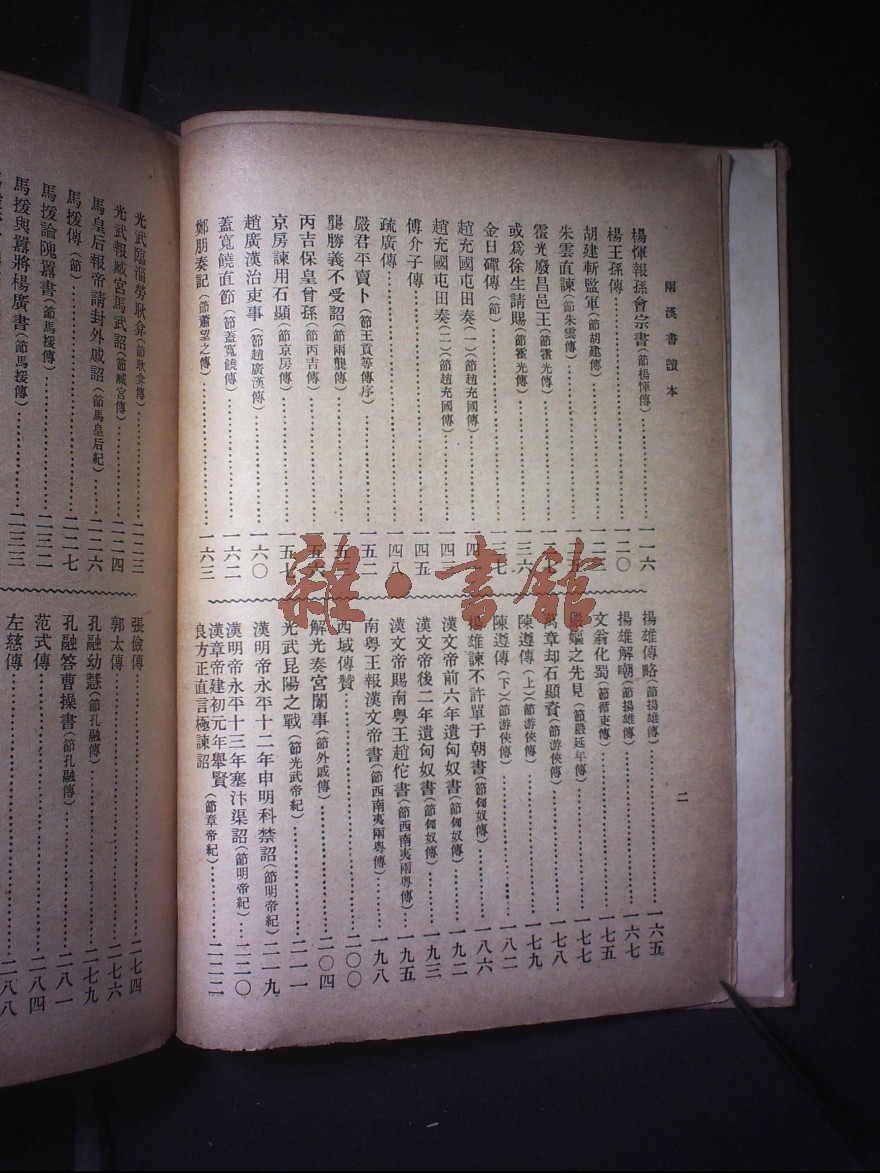 兩漢書讀本
二
楊惲報孫會宗書(節楊惲傳)……一一六
楊王孫傳……一二〇
胡建斬監軍(節胡建傳)……一二三
朱雲直諫(節朱雲傳)
霍光廢昌邑王(節霍光傳)……一二七
或爲徐生請賜(節霍光傳)……一三六
金日磾傳(節)
趙充國屯田奏(一)(節趙充國傳)
趙充國屯田奏(二)(節趙充國傳)
傅介子傳……一四五
疏廣傳……一四八
嚴君平賣卜(節王貢等傳序)……一五二
龔勝義不受詔(節兩龔傳)
丙吉保皇曾孫(節丙吉傳)
京房諫用石顯(節京房傳)……一五七
趙廣漢治吏事(節趙廣漢傳)……一六〇
蓋寬饒直節(節蓋寬饒傳)……一六二
鄭朋奏記(節蕭望之傳)……一六三
揚雄傳略(節揚雄傳)……一六五
揚雄解嘲(節揚雄傳)……一六七
文翁化蜀(節循吏傳)……一七五
嚴嫗之先見(節嚴延年傳)……一七七
萬章却石顯資(節游俠傳)……一七八
陳遵傳(上)(節游俠傳)……一七九
陳遵傳(下)(節游俠傳)……一八二
揚雄諫不許單于朝書(節匈奴傳)……一八六
漢文帝前六年遺匈奴書(節匈奴傳)……一九二
漢文帝後二年遺匈奴書(節匈奴傳)……一九三
漢文帝賜南粵王趙佗書(節西南夷兩粵傳)……一九五
南粵王報漢文帝書(節西南夷兩粵傳)……一九八
西域傳贊……二〇〇
解光奏宮闈事(節外戚傳)……二〇四
光武昆陽之戰(節光武帝紀)……二一一
漢明帝永平十二年申明科禁詔(節明帝紀)……二一九
漢明帝永平十三年塞汴渠詔(節明帝紀)……二二〇
漢章帝建初元年舉賢
良方正直言極諫詔(節章帝紀)……二二二
光武臨淄勞耿弇(節耿弇傳)……二二三
光武報臧宮馬武詔(節臧宮傳)……二二四
馬皇后報帝請封外戚詔(節馬皇后紀)……二二六
馬援傳(節)……二二七
馬援論隗囂書(節馬援傳)……二三二
馬援與囂將楊廣書(節馬援傳)……二三三
張儉傳……二七四
郭太傳……二七六
孔融幼慧(節孔融傳)……二七九
孔融答曹操書(節孔融傳)……二八一
范式傳……二八四
左慈傳……二八八
雜·書館